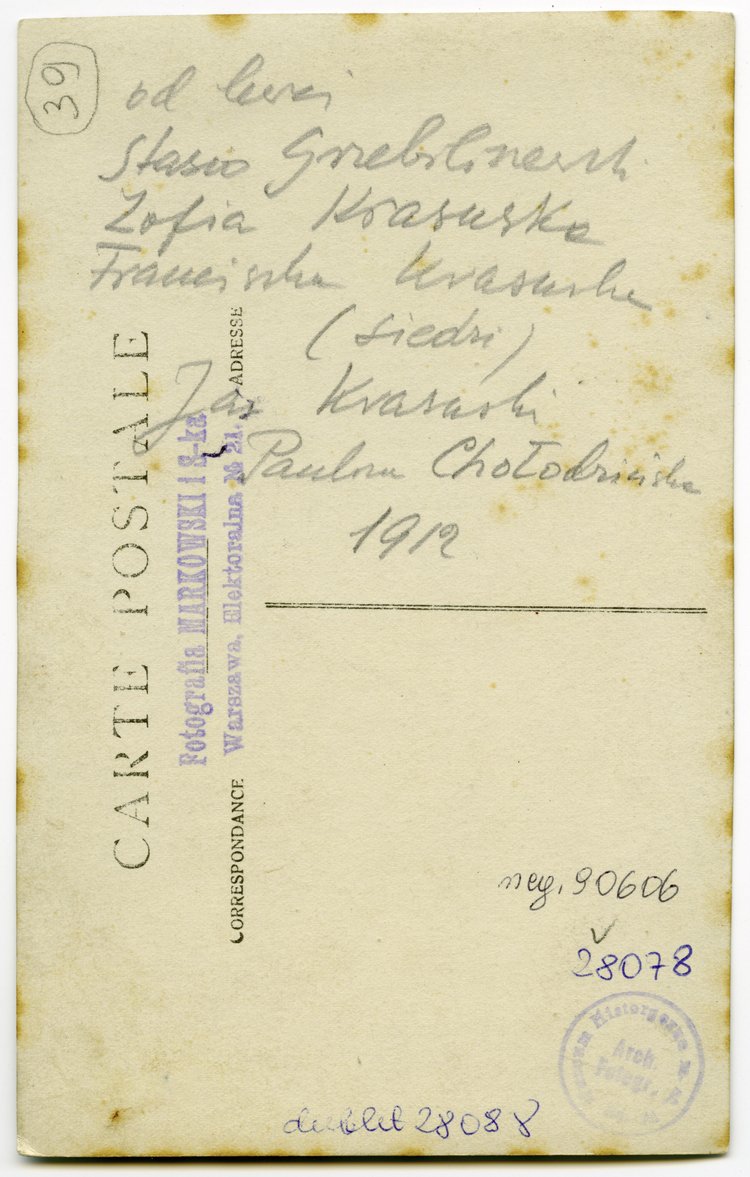 39
od lewej
Stasio
Zofia Krasuska
Franciszka Krasuska
(siedzi)
Jaś Krasuski
Paulina Chołodzińska
1912
CARTE POSTALE
Fotografia MARKOWSKI i S-ka
Warszawa, Elektoralna № 21.
CORRESPONDANCE
ADRESSE
neg. 90606
v
28078
Muzeum Historyczne M.
Arch.
Fotogr.
dublet 28088